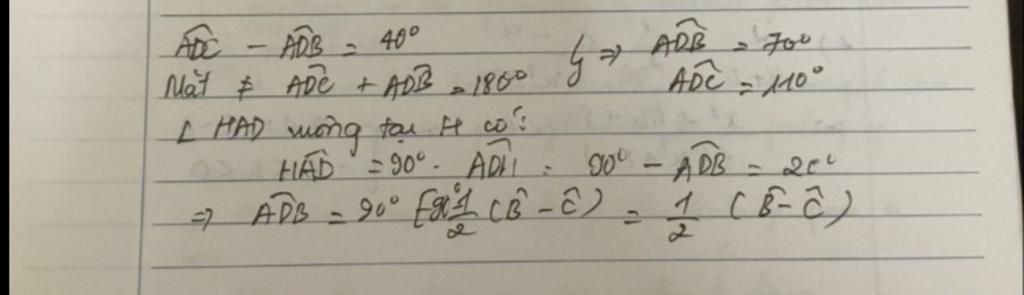 ADC^ - ADB^ = 40° } ⇒ ADB^ = 70°
Mặt ≠ ADC^ + ADB^ = 180° ADC^ = 110°
∠ HAD vuông tại H có:
HAD^ = 90° - ADH^ = 90° - ADB^ = 20°
⇒ ADB^ = 90° [90° 1/2 (B^ - C^) = 1/2 (B^ - C^)